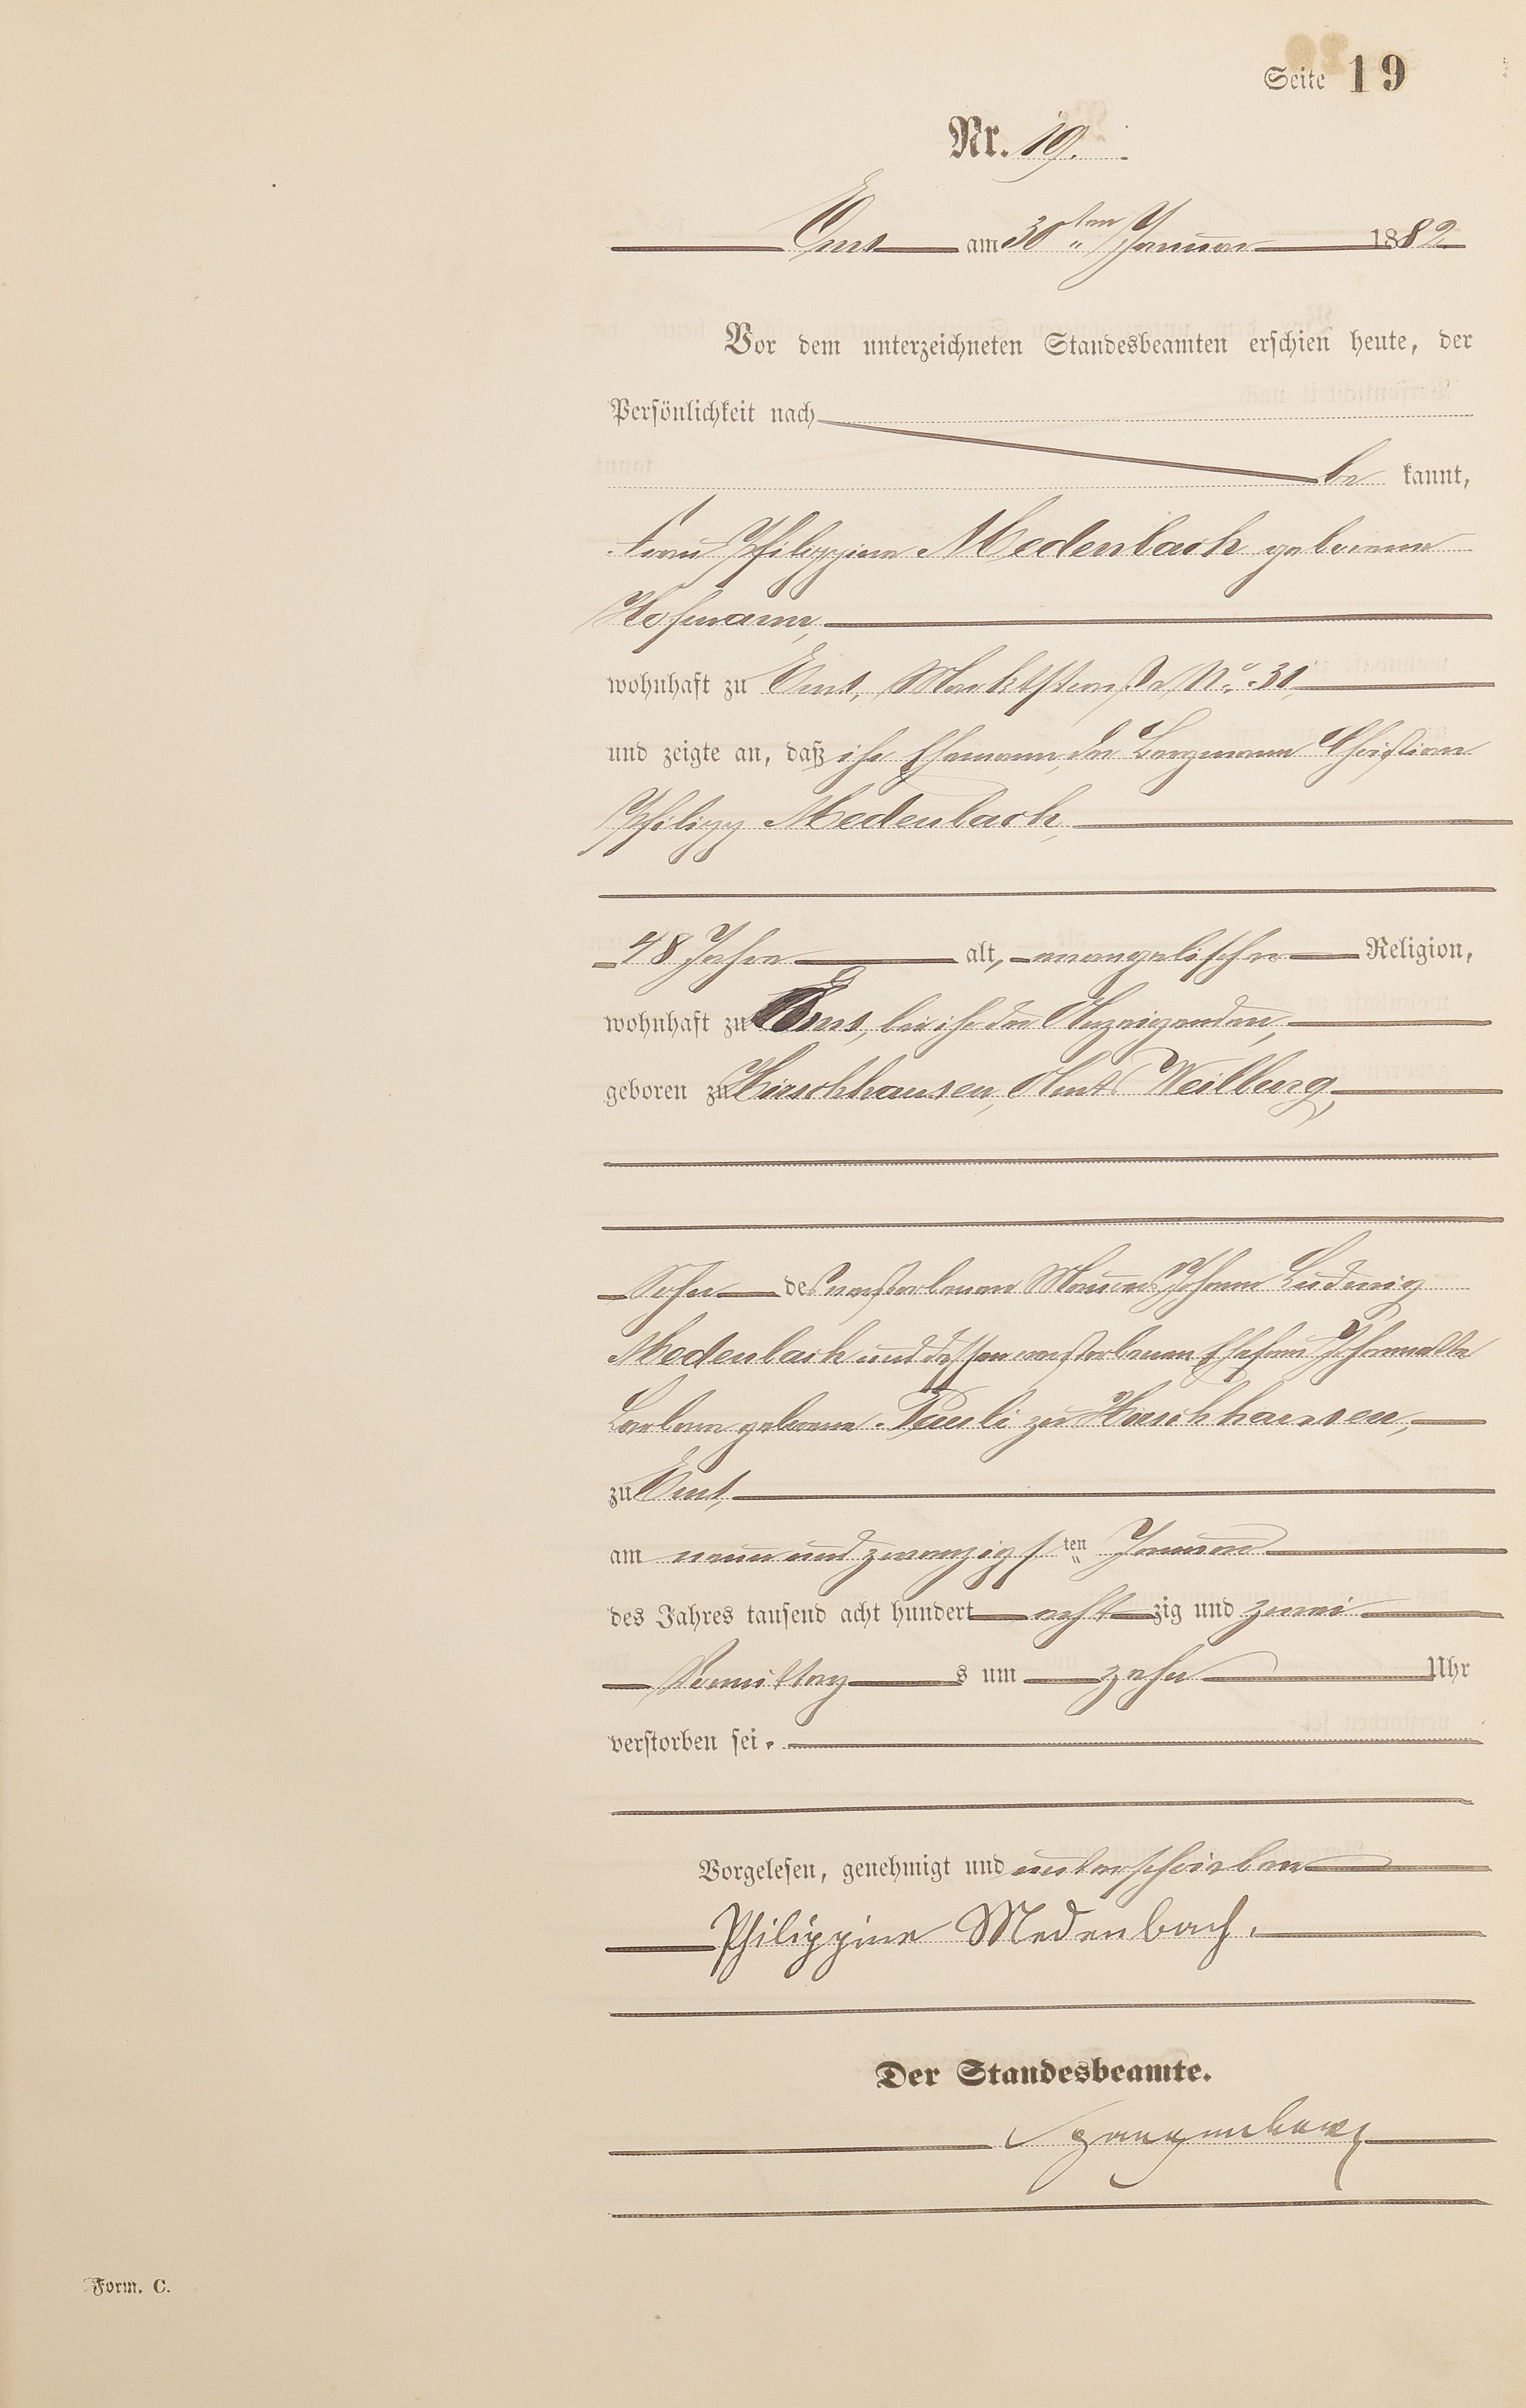 Seite 19
Nr. 19.
Ems am 30ten Januar 1882
Vor dem unterzeichneten Standesbeamten erschien heute, der
Persönlichkeit nach
be kannt,
Frau Philippine Medenbach geborene
Hofmann,
wohnhaft zu Ems, Marktstraße No. 31,
und zeigte an, daß ihr Ehemann, der Bergmann Christian
Philipp Medenbach,
48 Jahre alt, evangelischer Religion,
wohnhaft zu Ems, bei ihr der Anzeigenden,
geboren zu Hirschhausen, Amts Weilburg,
Sohn des verstorbenen Maurers Johann Ludwig
Medenbach und dessen verstorbenen Ehefrau Johannette
Barbara geborene Pauli zu Hirschhausen,
zu Ems,
am neun und zwanzigsten Januar
des Jahres tausend acht hundert achtzig und zwei
Vormittags um zehn Uhr
verstorben sei.
Vorgelesen, genehmigt und unterschrieben
Philippine Medenbach.
Der Standesbeamte.
Form. C.